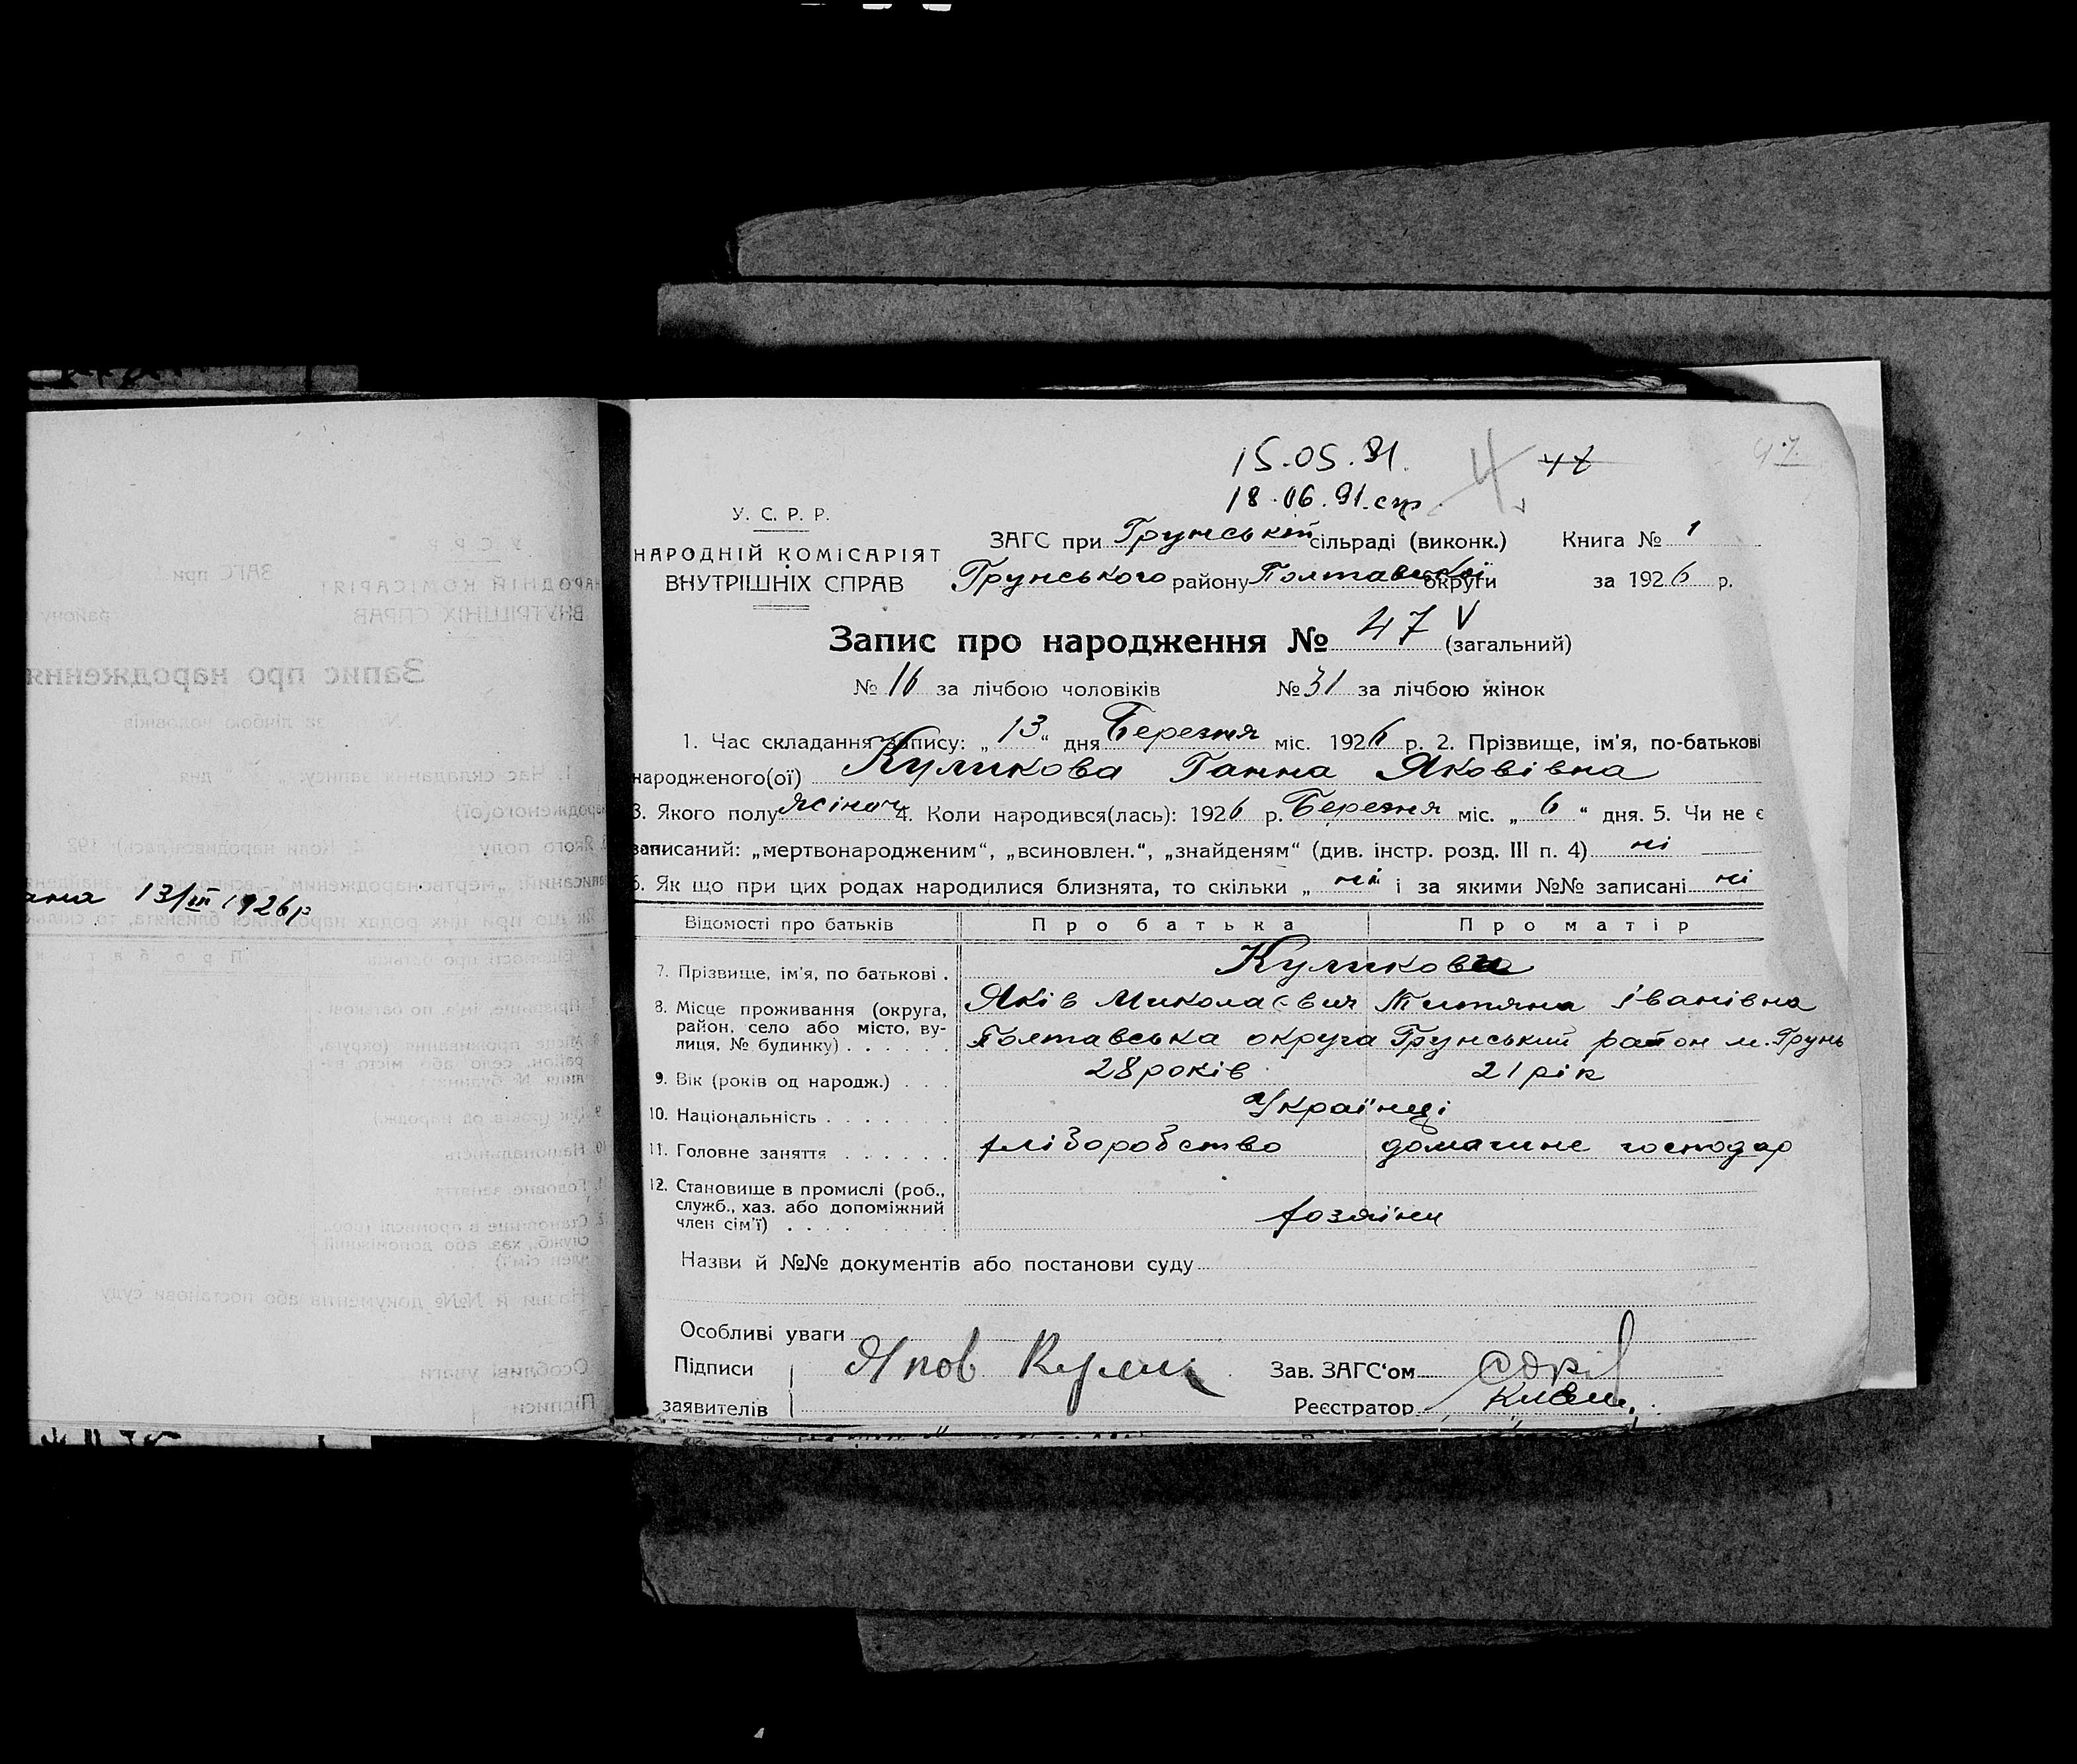 ана 13/III 1926 р
15.05.91.
18.06.91. стр
47
У. С. Р. Р.
НАРОДНІЙ КОМІСАРІЯТ
ВНУТРІШНІХ СПРАВ
ЗАГС при Грунській сільраді (виконк.) Книга № 1
Грунського району Полтавської округи за 1926 р.
Запис про народження № 47 V (загальний)
№ 16 за лічбою чоловіків № 31 за лічбою жінок
1. Час складання запису: „ 13 “ дня Березня міс. 1926 р. 2. Прізвище, ім'я, по-батькові
народженого(ої) Куликова Ганна Яковівна
3. Якого полу жіноч 4. Коли народився(лась): 1926 р. Березня міс. „ 6 “ дня. 5. Чи не є
записаний: „мертвонародженим“, „всиновлен.“, „знайденям“ (див. інстр. розд. III п. 4) ні
6. Як що при цих родах народилися близнята, то скільки „ ні і за якими №№ записані ні
Відомості про батьків Про батька Про матір
7. Прізвище, ім'я, по батькові . Куликови
8. Місце проживання (округа, район, село або місто, ву-лиця, № будинку) . . . . . .
Яків Миколаєвич Титяна Іванівна
Полтавська округа Грунський район м. Грунь
9. Вік (років од народж.) . . . 28 років 21 рік
10. Національність . . . . . . . Українці
11. Головне заняття . . . . . . хліборобство домашнє господар
12. Становище в промислі (роб.,
служб., хаз. або допоміжний
член сім'ї) . . . . . . . . хозяїни
Назви й №№ документів або постанови суду
Особливі уваги
Підписи Яков Кулик Зав. ЗАГС‘ом
заявителів Реєстратор